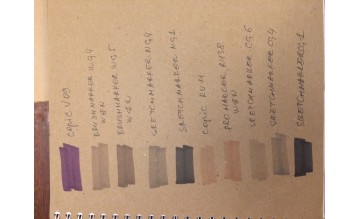 COPIC V09
BRUSHMARKER WG4
W&N
BRUSHMARKER WG5
W&N
SKETCHMARKER NG4
SKETCHMARKER NG1
COPIC
PROMARKER
W&N
SKETCHMARKER CG5
SKETCHMARKER CG4
SKETCHMARKER